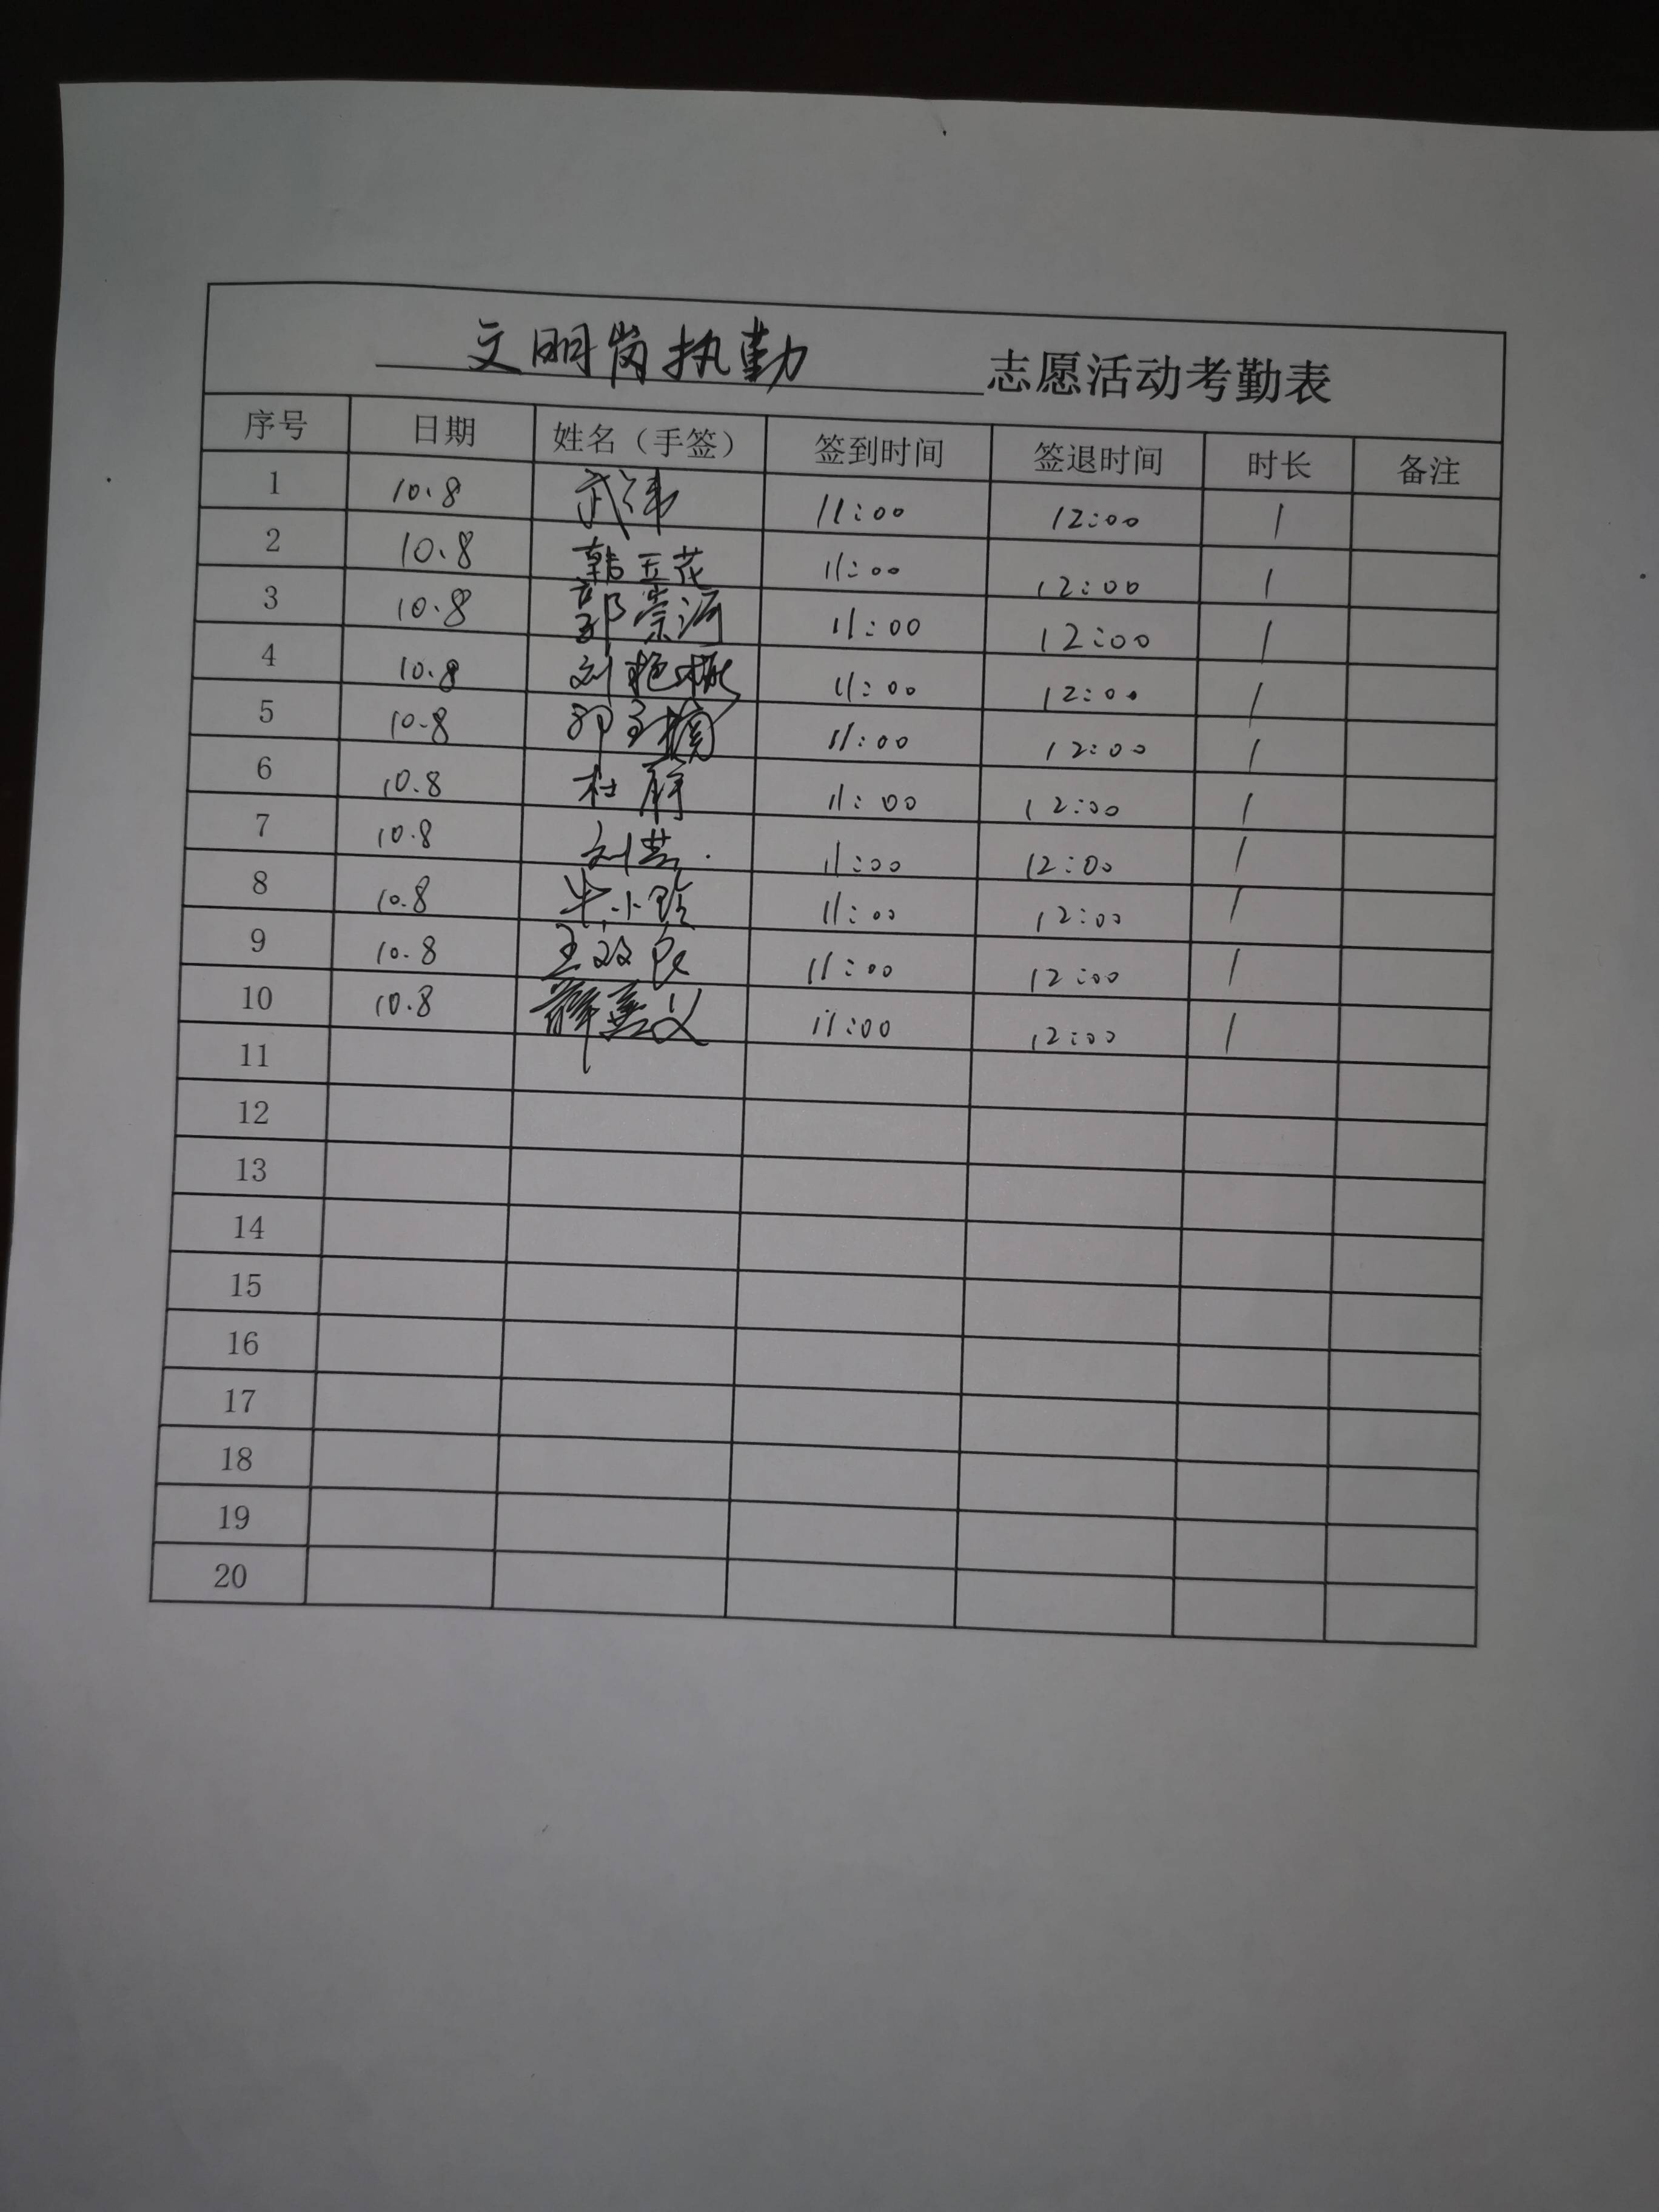 文明岗执勤 志愿活动考勤表
序号 日期 姓名（手签） 签到时间 签退时间 时长 备注
1 10.8 武伟 11:00 12:00 1
2 10.8 韩玉花 11:00 12:00 1
3 10.8 郭崇源 11:00 12:00 1
4 10.8 刘艳 11:00 12:00 1
5 10.8 11:00 12:00 1
6 10.8 杜 11:00 12:00 1
7 10.8 刘芸 11:00 12:00 1
8 10.8 牛小 11:00 12:00 1
9 10.8 王政 11:00 12:00 1
10 10.8 薛 义 11:00 12:00 1
11
12
13
14
15
16
17
18
19
20